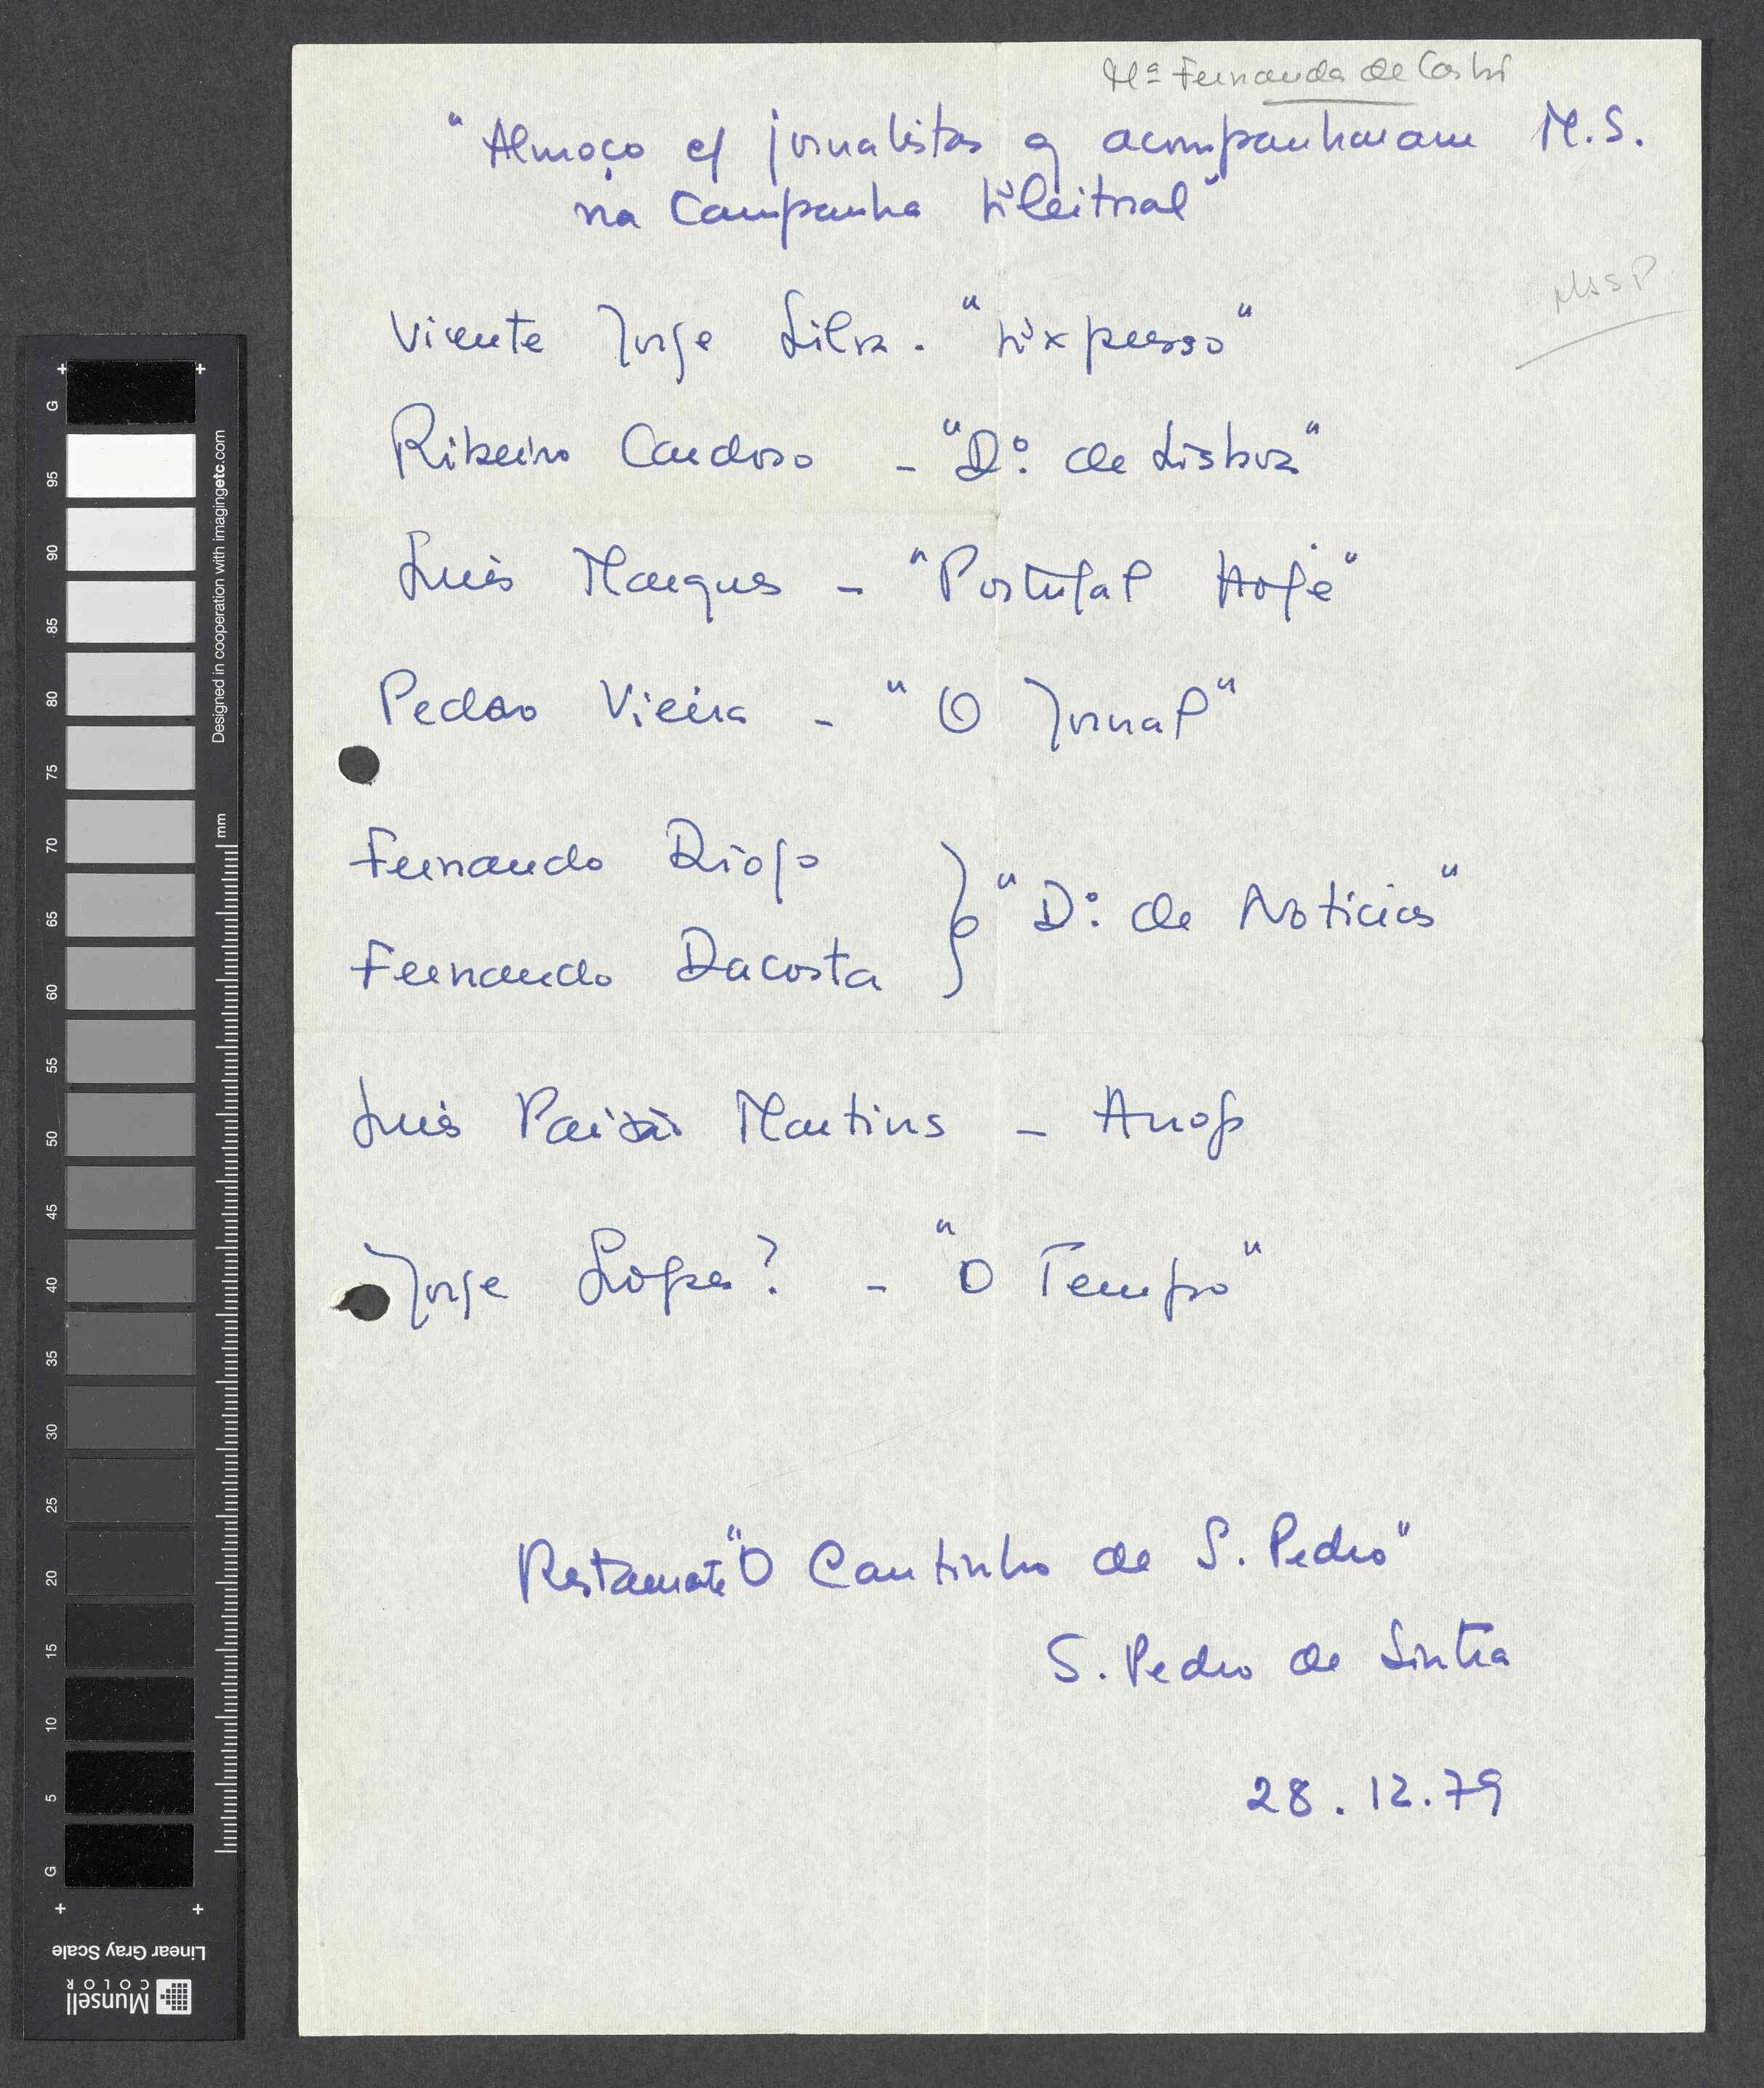 Mª Fernanda de Castro
"Almoço c/ jornalistas q acompanharam M.S.
na Campanha Eleitoral"
MSSP
Vicente Jorge Silva. "Expresso"
Ribeiro Cardoso - "Dº. de Lisboa"
Luís Marques - "Portugal Hoje"
Pedro Vieira - "O Jornal"
Fernando Diogo
Fernando Dacosta } "Dº. de Notícias"
Luís Paixão Martins - Anop
Jorge Lopes? - "O Tempo"
Restaurante "O Cantinho de S. Pedro"
S. Pedro de Sintra
28.12.79
G
95
90
85
80
75
70
65
60
55
50
45
40
35
30
25
20
15
10
5
G
Designed in cooperation with imagingetc.com
mm
Linear Gray Scale
Munsell
COLOR